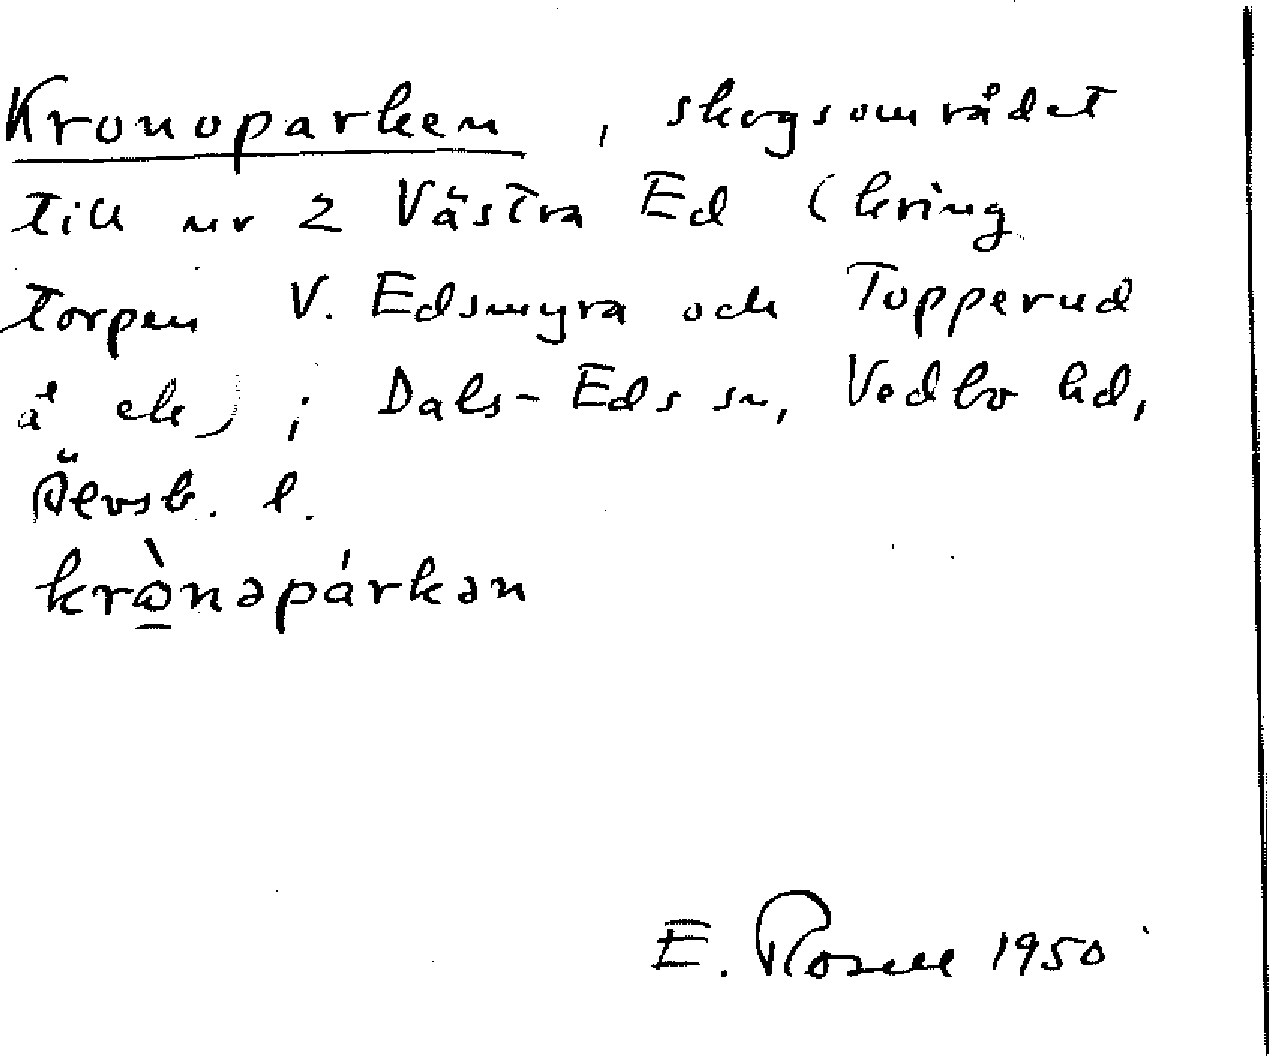 Kronoparken, skogsområdet
till nr 2 Västra Ed (kring
torpen V. Edsmyra och Topperud
å ek); Dals-Eds sn, Vedbo hd,
Älvsb. l.
krò̱nəpárkən
E. Rosell 1950